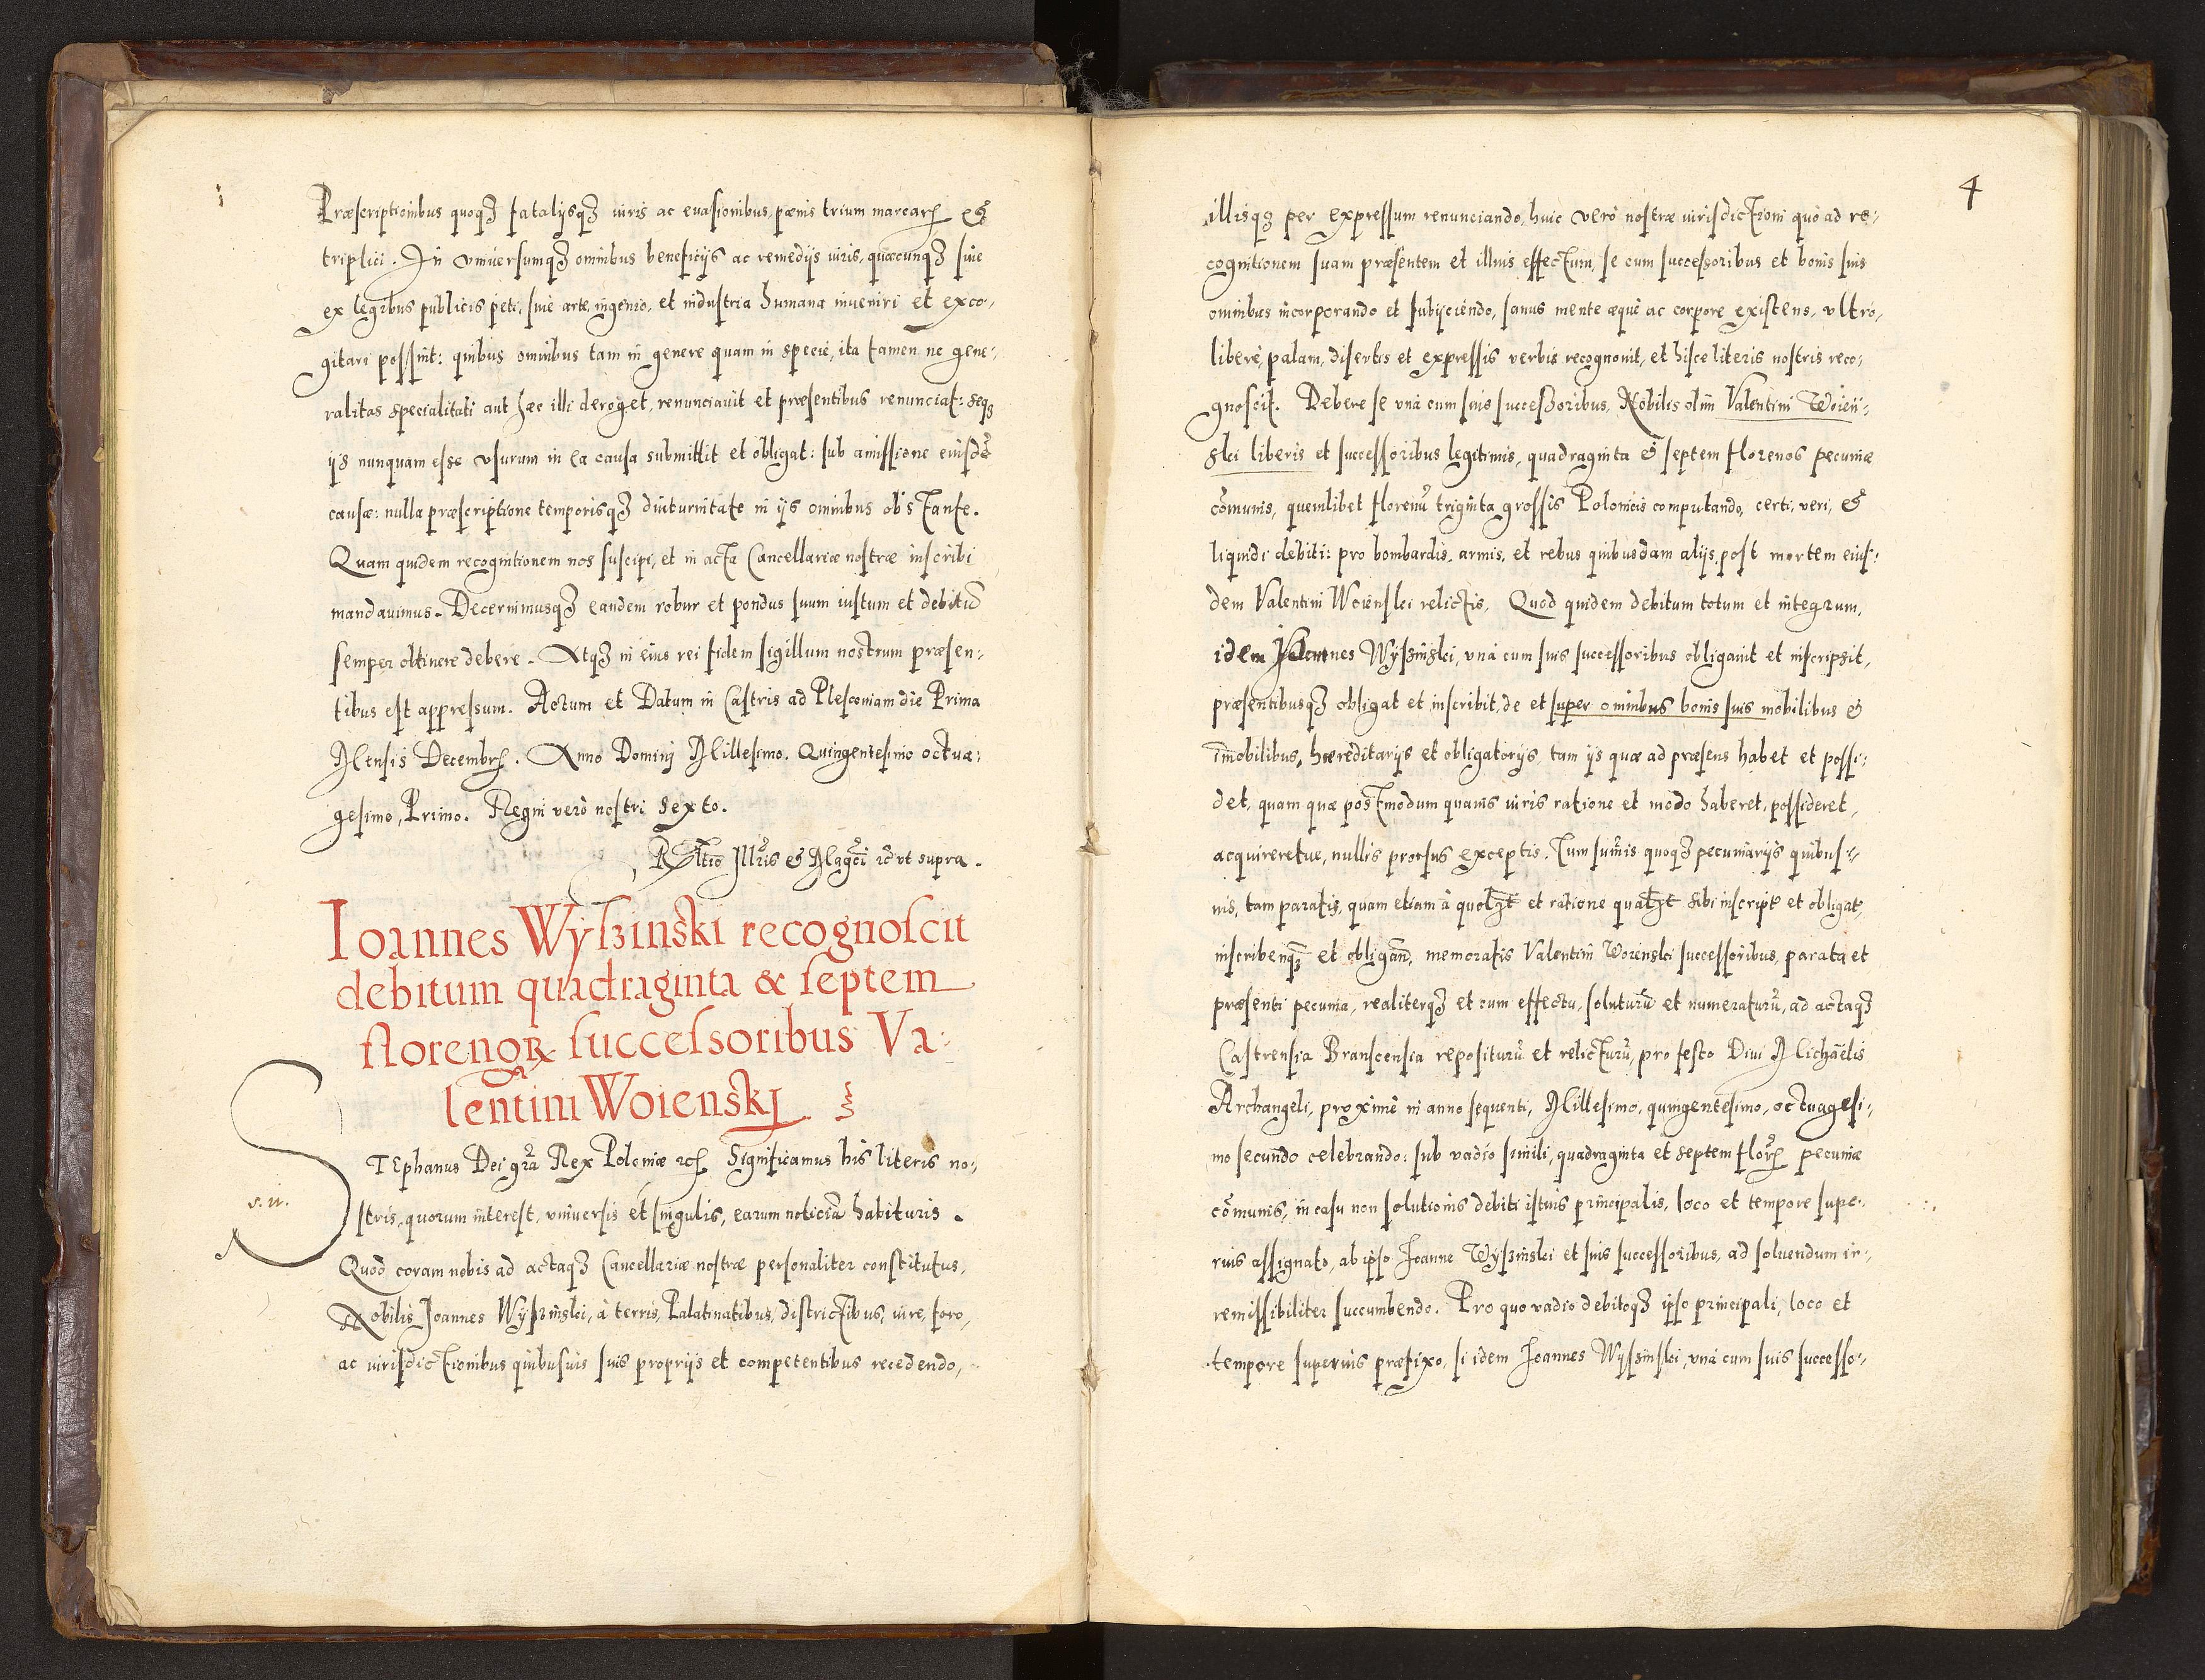 Præscriptionibus quoqꝫ fatalijsqꝫ iuris ac euasionibus, pænis trium marcarꝝ &
triplici. In vniuersumqꝫ omnibus beneficijs ac remedijs iuris, quæcunqꝫ siue
ex legibus publicis peti, siue arte, ingenio, et industria humana inueniri et exco-
gitari possint: quibus omnibus tam in genere quam in specie, ita tamen ne gene-
ralitas specialitati aut hæc illi deroget, renunciauit et præsentibus renunciat: seqꝫ
ijs nunquam esse vsurum in ea causa submittit et obligat: sub amissione eiusdē
causæ: nulla præscriptione temporisqꝫ diuturnitate in ijs omnibus obstante.
Quam quidem recognitionem nos suscipi, et in acta Cancellariæ nostræ inscribi
mandauimus. Decernimusqꝫ eandem robur et pondus suum iustum et debitū
semper obtinere debere. Atqꝫ in eius rei fidem sigillum nostrum præsen-
tibus est appressum. Actum et Datum in Castris ad Plesconiam die Prima
Mensis Decembrꝭ. Anno Dominj Millesimo. Quingentesimo octua-
gesimo, Primo. Regni verò nostri sexto.
Rltio Illris & Magci ꝛc vt supra.
Ioannes Wyſzinski recognoſcit
debitum quadraginta & ſeptem
florenoꝝ ſucceſsoribus Va-
lentini Woienskj.
s. ii.
STEphanus Dei gra Rex Poloniæ ꝛcꝭ Significamus his literis no-
stris, quorum interest, vniuersis et singulis, earum noticiā habituris.
Quod coram nobis ad actaqꝫ Cancellariæ nostræ personaliter constitutus,
Nobilis Joannes Wyszinski, à terris, Palatinatibus, districtibus, iure, foro,
ac iurisdictionibus quibusuis suis proprijs et competentibus recedendo,
4
illisqꝫ per expressum renunciando, huic verò nostræ iurisdictioni quo ad re-
cognitionem suam præsentem et illius effectum, se cum successoribus et bonis suis
omnibus incorporando et subijciendo, sanus mente æquè ac corpore existens, vltrò,
liberè, palam, disertis et expressis verbis recognouit, et hisce literis nostris reco-
gnoscit. Debere se vnà cum suis successoribus, Nobilis olim Valentini Woien-
ski liberis et successoribus legitimis, quadraginta & septem florenos pecuniæ
cōmunis, quemlibet florenū triginta grossis Polonicis computando, certi, veri, &
liquidi debiti: pro bombardis, armis, et rebus quibusdam alijs, post mortem eius-
dem Valentini Woienski relictis. Quod quidem debitum totum et integrum,
idem Joannes Wyszinski, vnà cum suis successoribus obligauit et inscripsit,
præsentibusqꝫ obligat et inscribit, de et super omnibus bonis suis mobilibus &
im̄obilibus, hæreditarijs et obligatorijs, tam ijs quæ ad præsens habet et possi-
det, quam quæ postmodum quauis iuris ratione et modo haberet, possideret,
acquireretue, nullis prorsus exceptis. Tum sum̄is quoqꝫ pecuniarijs quibus-
uis, tam paratis, quam etiam à quolꝫt et ratione qualꝫt sibi inscript. et obligat.
inscribenqꝫ et obligan̄. memoratis Valentini Woienski successoribus, parata et
præsenti pecunia, realiterqꝫ et cum effectu, soluturū et numeraturū, ad actaqꝫ
Castrensia Branscensia repositurū et relicturū, pro festo Diui Michaēlis
Archangeli, proximè in anno sequenti, Millesimo, quingentesimo, octuagesi-
mo secundo celebrando: sub vadio simili, quadraginta et septem florꝝ pecuniæ
cōmunis, in casu non solutionis debiti istius principalis, loco et tempore supe-
rius assignato, ab ipso Joanne Wyszinski et suis successoribus, ad soluendum ir-
remissibiliter succumbendo. Pro quo vadio debitoqꝫ ipso principali, loco et
tempore superius præfixo, si idem Joannes Wyszinski, vnà cum suis successo-